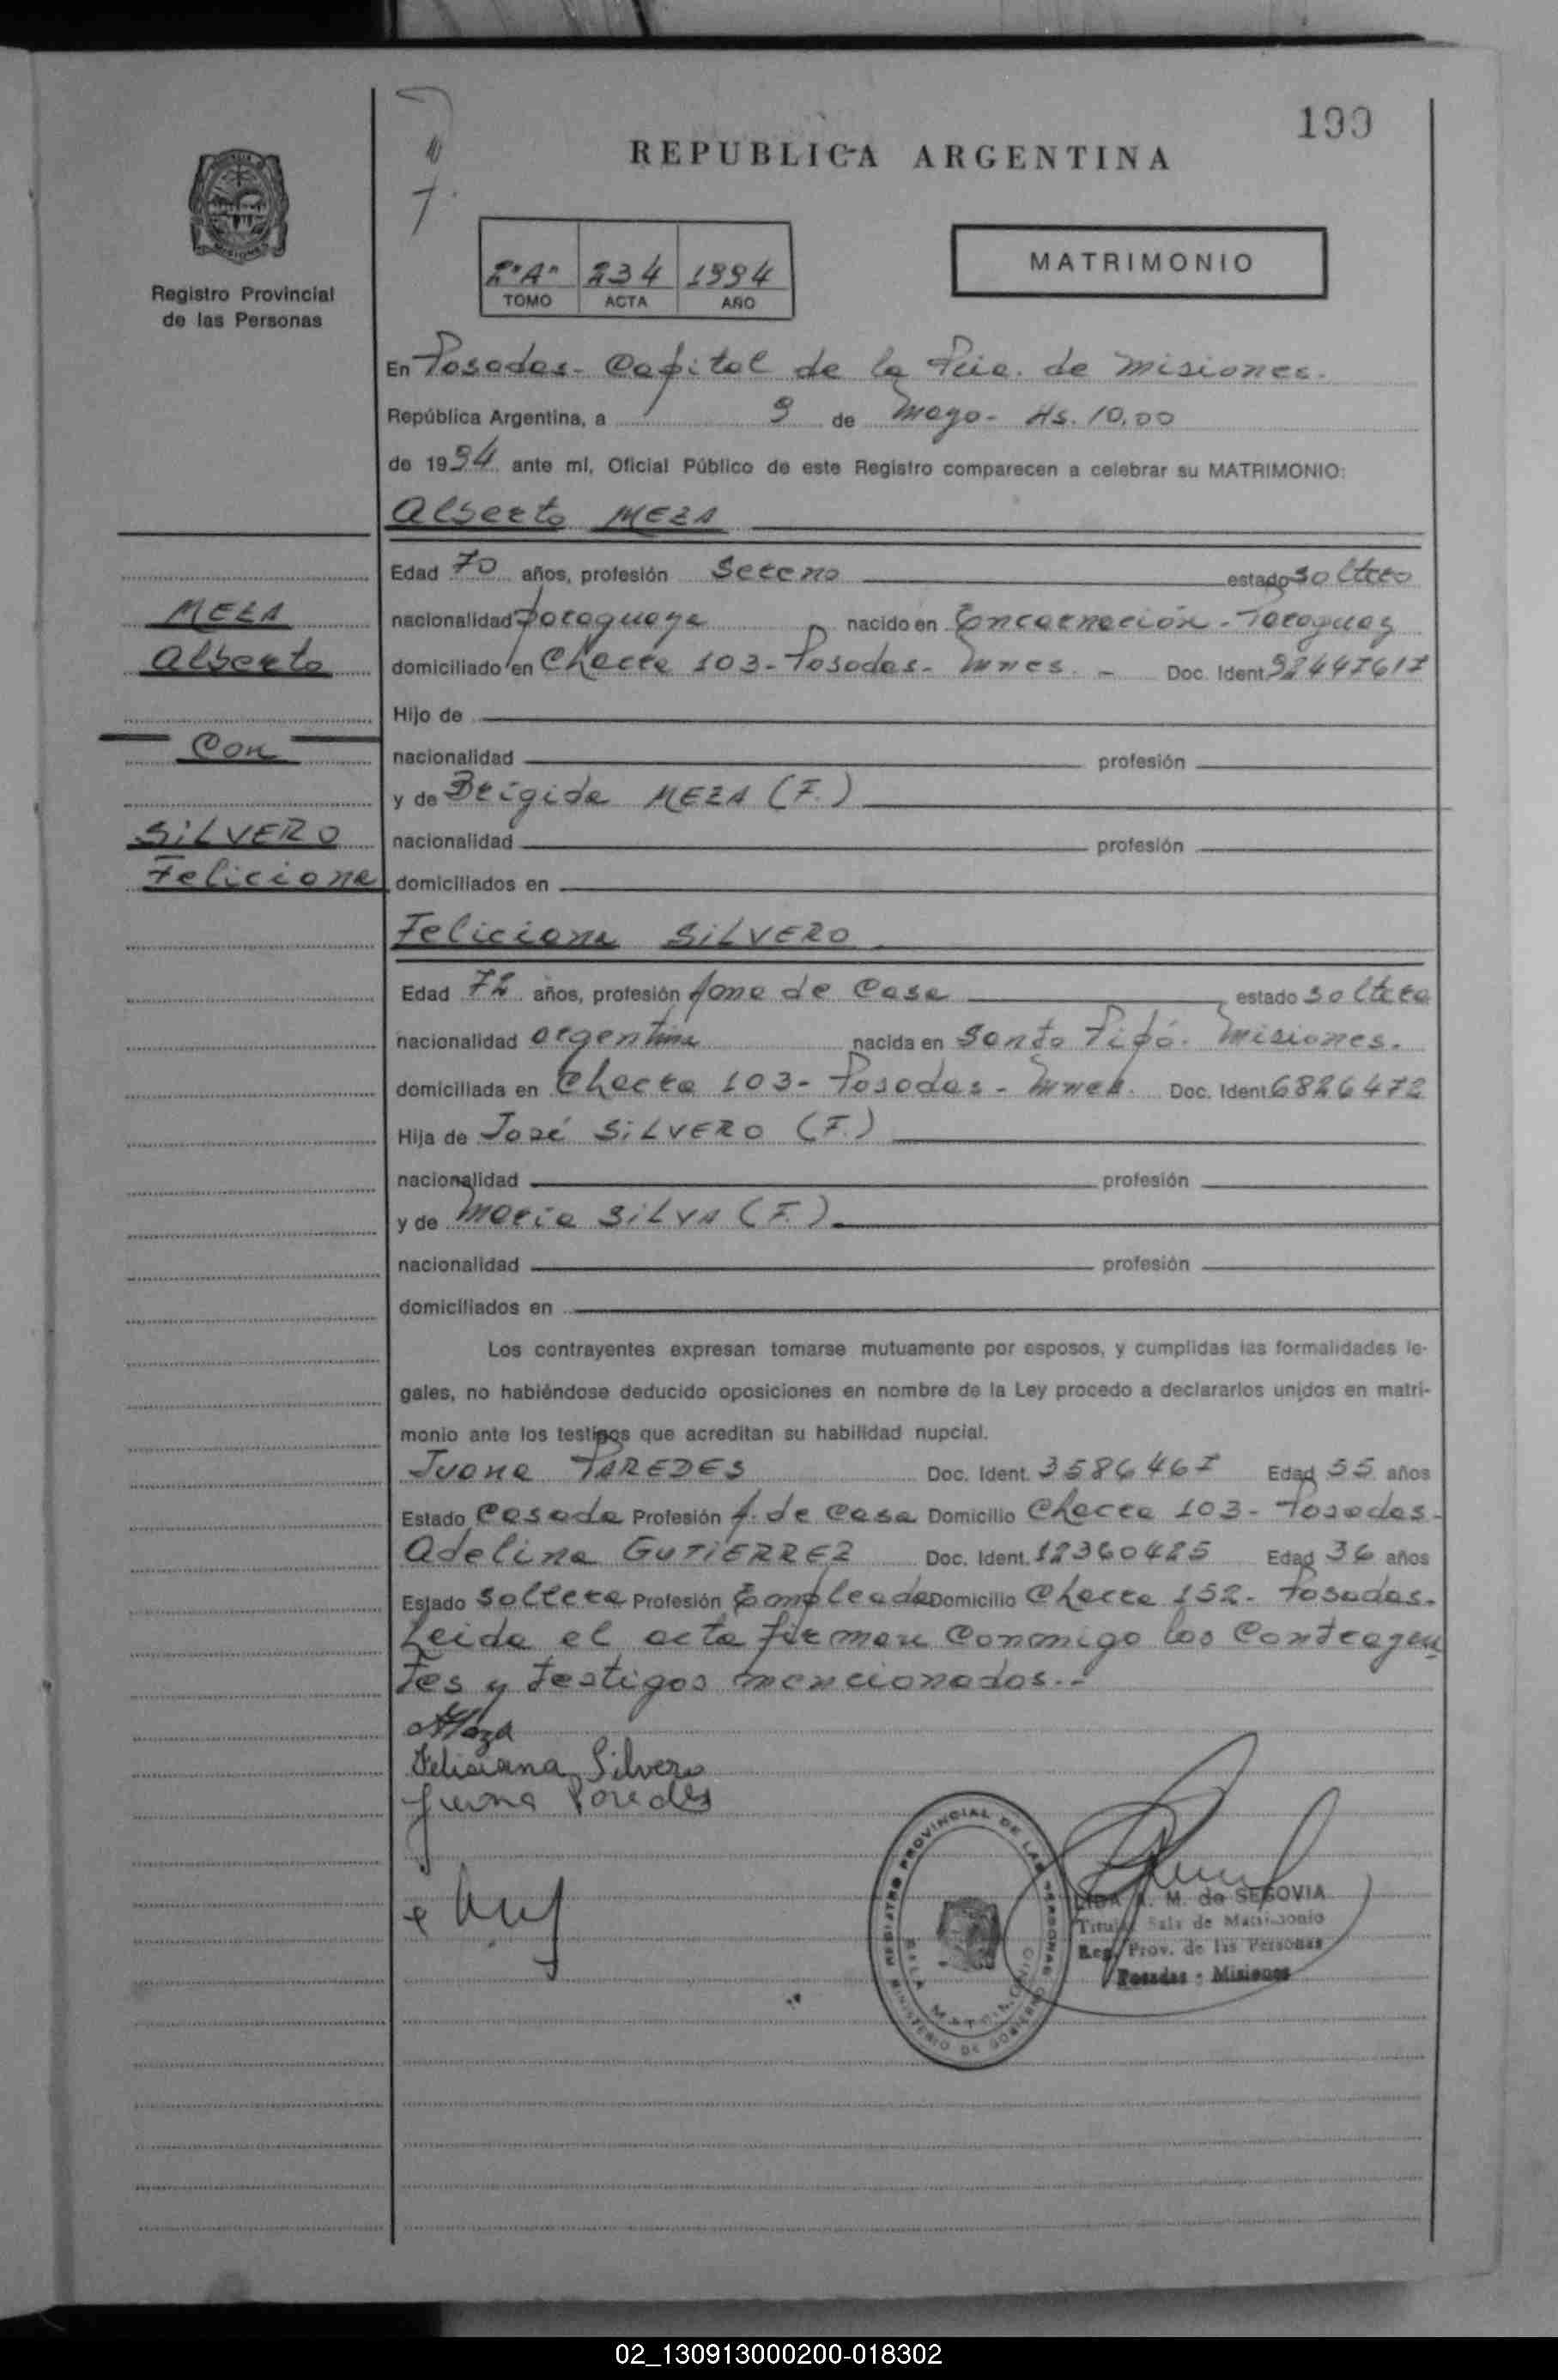 199
REPUBLICA ARGENTINA
MATRIMONIO
2"A" 234 1994
TOMO ACTA AÑO
Registro Provincial
de las Personas
En Posadas - Capital de la Pcia. de Misiones.
República Argentina, a 9 de Mayo - Hs. 10,00
de 1994 ante mí, Oficial Público de este Registro comparecen a celebrar su MATRIMONIO:
Alberto MEZA
Edad 70 años, profesión Sereno estado soltero
nacionalidad paraguaya nacido en Encarnación - Paraguay
domiciliado en Chacra 103 - Posadas - Mnes. - Doc. Ident.
Hijo de
nacionalidad profesión
y de Brígida MEZA (F.)
nacionalidad profesión
domiciliados en
MEZA
Alberto
Con
SILVERO
Feliciana
Feliciana SILVERO
Edad 72 años, profesión Ama de Casa estado soltera
nacionalidad argentina nacida en Santo Pipó - Misiones.
domiciliada en Chacra 103 - Posadas - Mnes. Doc. Ident. 6826472
Hija de José SILVERO (F.)
nacionalidad profesión
y de María SILVA (F.)
nacionalidad profesión
domiciliados en
Los contrayentes expresan tomarse mutuamente por esposos, y cumplidas las formalidades le-
gales, no habiéndose deducido oposiciones en nombre de la Ley procedo a declararlos unidos en matri-
monio ante los testigos que acreditan su habilidad nupcial.
Juana PAREDES Doc. Ident. 3586467 Edad 55 años
Estado Casada Profesión A. de Casa Domicilio Chacra 103 - Posadas -
Adelina GUTIERREZ Doc. Ident. 12360425 Edad 36 años
Estado Soltera Profesión Empleada Domicilio Chacra 152 - Posadas.
Leida el acta firman conmigo los contrayen
tes y testigos mencionados.-
AMeza
Felisiana Silvero
Juana Paredes
REGISTRO PROVINCIAL DE LAS PERSONAS
SALA MATRIMONIO
MINISTERIO DE GOBIERNO
M. de SEGOVIA
Titular Sala de Matrimonio
Reg. Prov. de las Personas
Posadas - Misiones
02_130913000200-018302